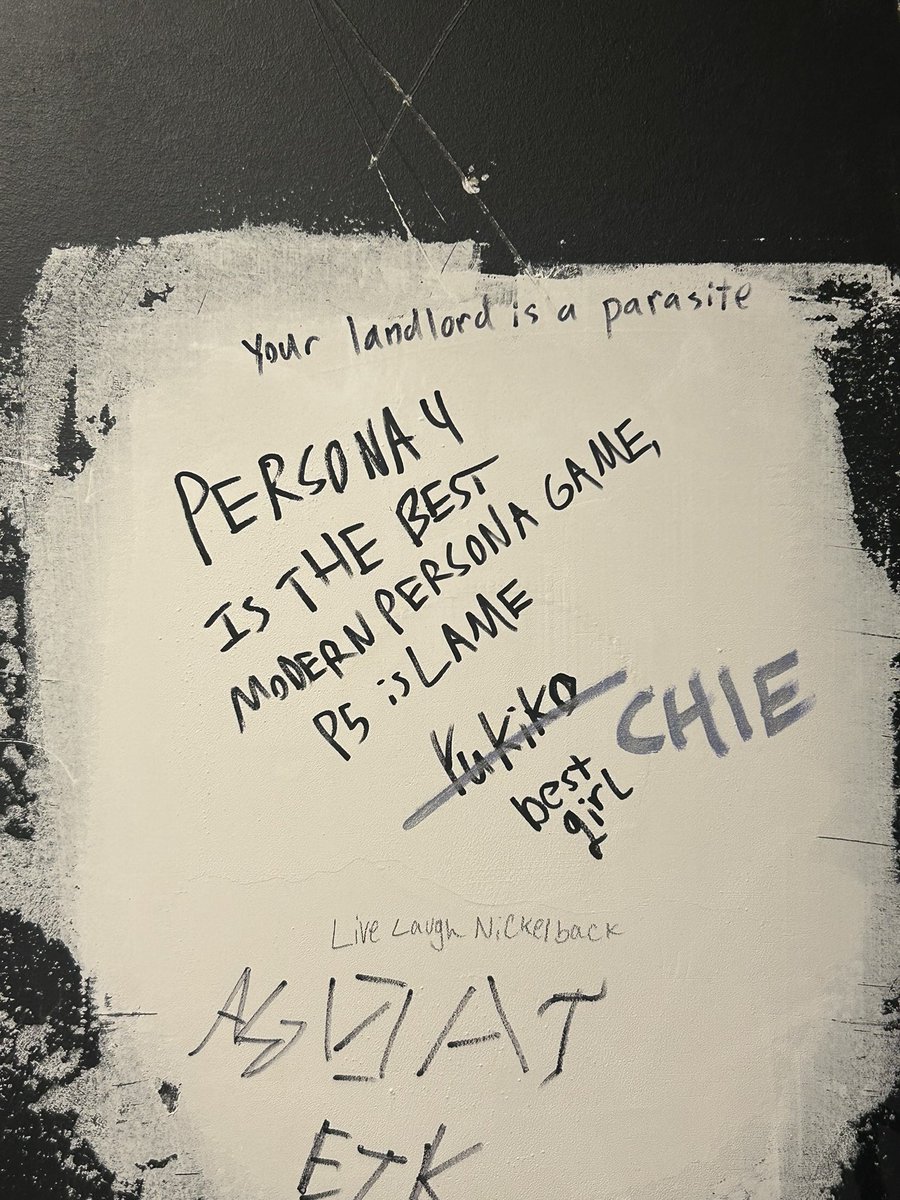 Your landlord is a parasite
PERSONA 4
IS THE BEST
MODERN PERSONA GAME,
P5 is LAME
Yukiko CHIE
best
girl
Live Laugh Nickelback
ETK